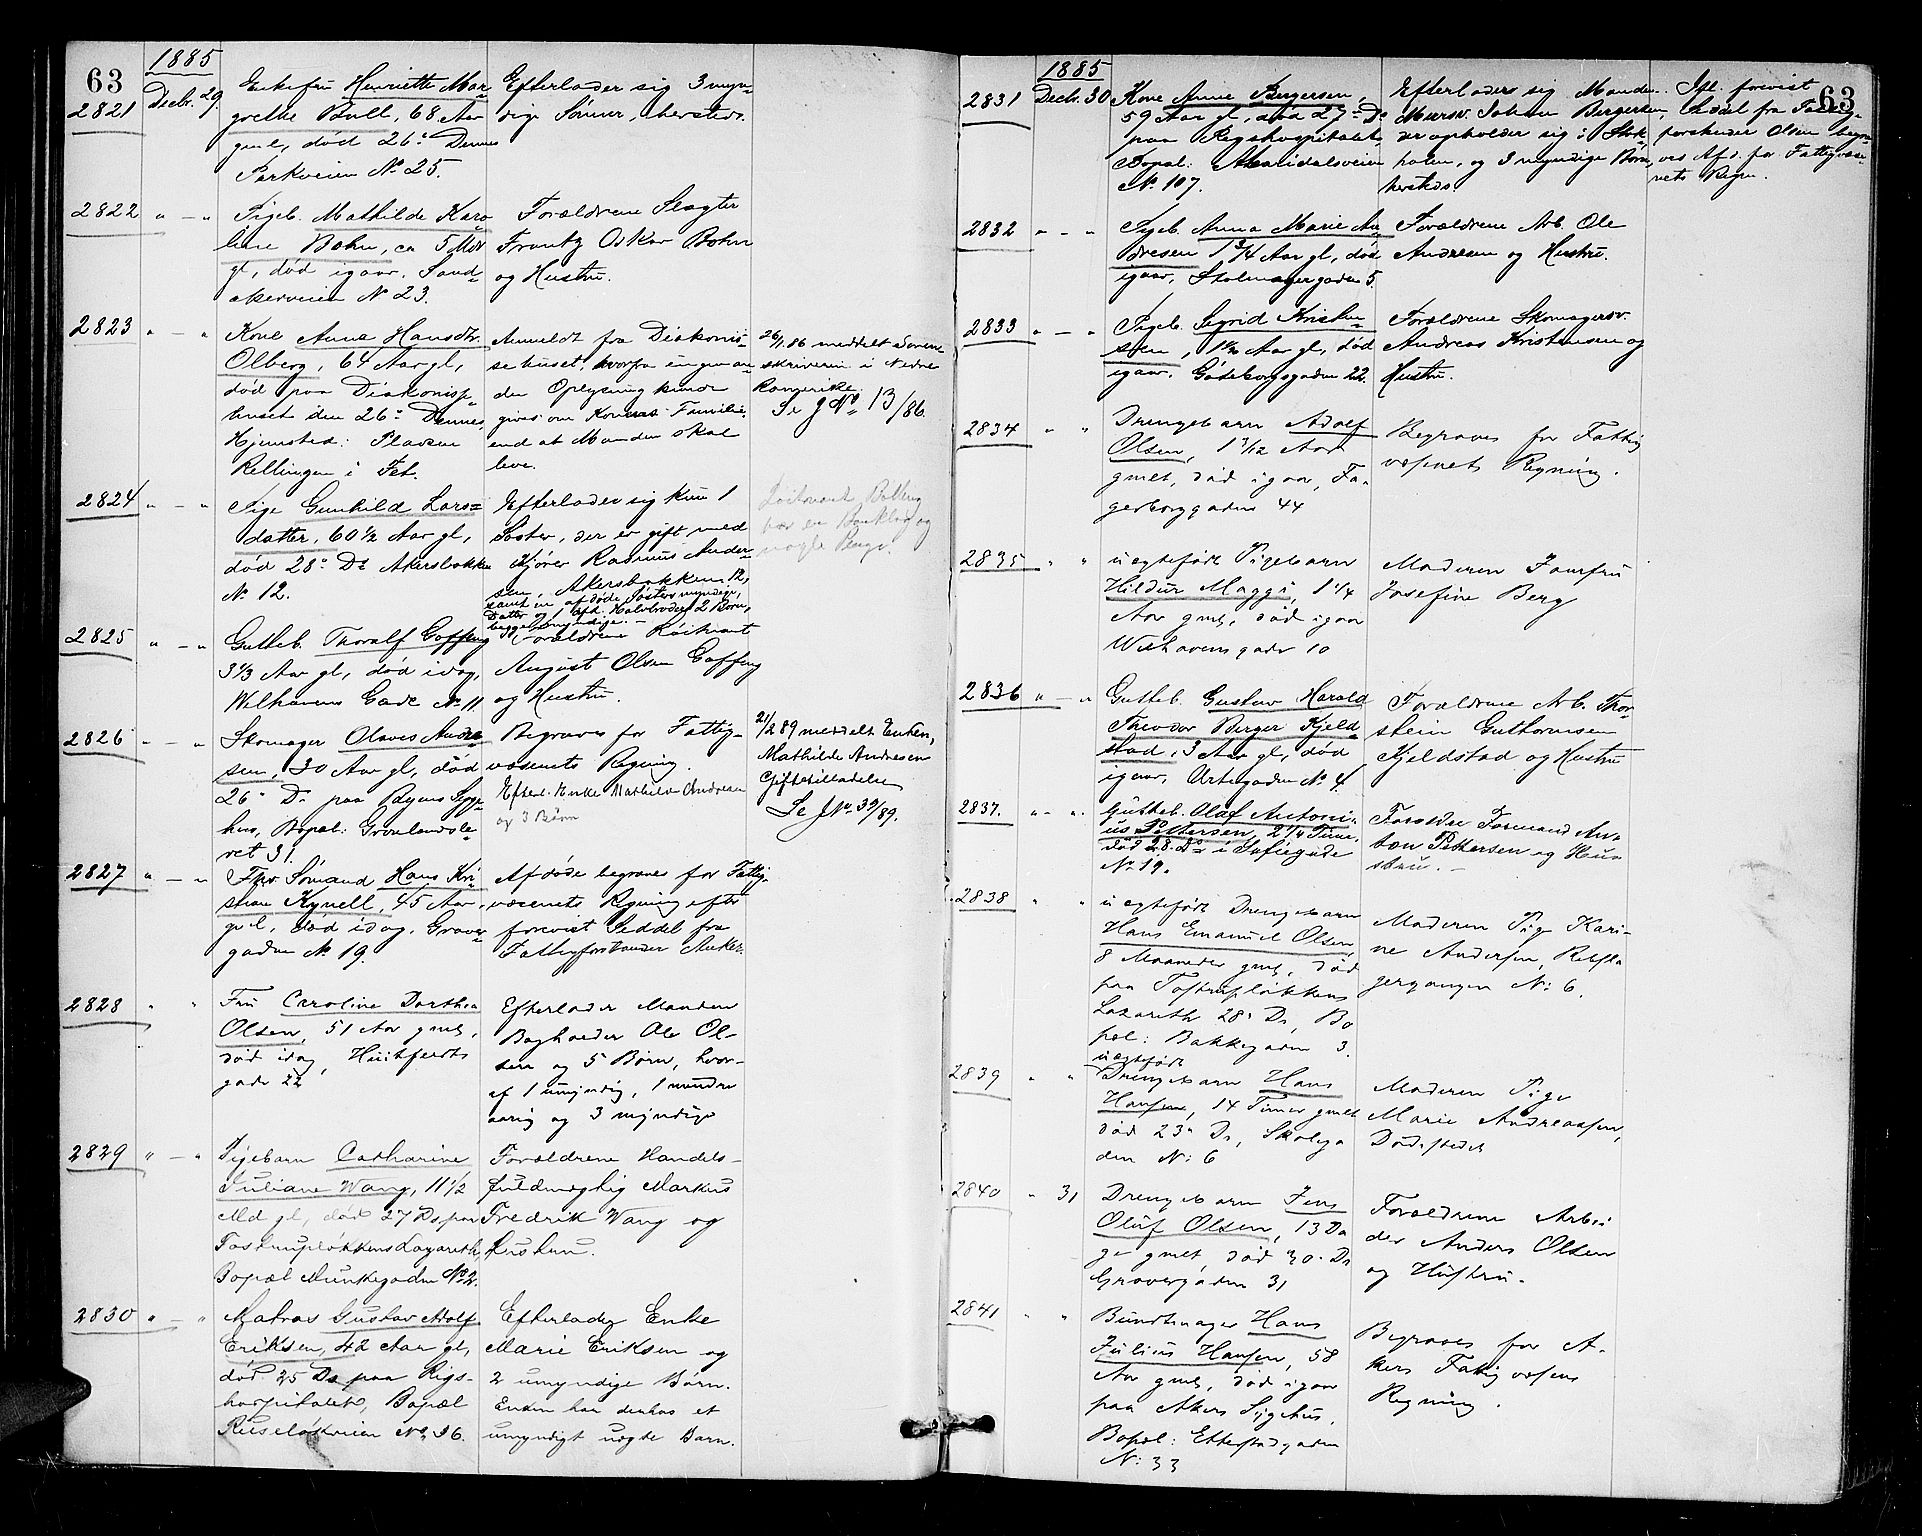 63
1885
2821 Decbr. 29. Enkefru Henriette Mar-
grethe Bull, 68 Aar
gml, død 26de Dennes
Parkveien No 25.
Efterlader sig 3 myn-
dige Sønner, hersteds.
2822 " — " Pigeb. Mathilde Karo
line Bohn, ca 5 Mdr
gl, død igaar. Sand-
akerveien No 23.
Forældrene Slagter
Frantz Oskar Bohn
og Hustru.
2823 " — " Kone Anna Hansdtr.
Olberg, 64 Aar gl,
død paa Diakonisse-
huset den 26de Dennes
Hjemsted: Pladsen
Rellingen i Fet.
Anmeldt fra Diakonis-
sehuset, hvorfra ingen an-
den Oplysning kunde
gives om Konens Familie
end at Manden skal
leve.
26/1 86 meddelt Soren-
skriveren i Nedre
Romerike.
Se J No 13/86.
2824 " — " Pige Gunhild Lars-
datter, 60 1/2 Aar gl,
død 28de Ds Akersbakken
No 12.
Efterlader sig kun 1
Søster, der er gift med
Kjører Rasmus Ander-
sen, Akersbakken 12,
samt en af døde Søsters myndige
Datter og 1 afd. Halvbroders 2 Børn,
begge umyndige. —
har en Bankbog og
nogle Penge.
2825 " — " Gutteb. Thoralf Goffeng
3 1/3 Aar gl, død idag,
Welhavens Gade No 11
Forældrene
August Olsen Goffeng
og Hustru.
2826 " — " Skomager Olaves Andre-
sen, 30 Aar gl, død
26de Ds paa Byens Syge-
hus, Bopæl: Grønlandsle-
ret 31.
Begraves for Fattig-
væsenets Regning.
Efterl. Enke Mathilde Andresen
og 3 Børn
21/2 89 meddelt Enken,
Mathilde Andresen
Giftetilladelse
Se J No 39/89.
2827 " — " Fhv Sømand Hans Kri-
stian Kynell, 45 Aar
gul, død idag. Graver-
gaden No 19.
Afdøde begraves for Fattig-
væsenets Regning efter
forevist Seddel fra
Fattigforstander Anker.
2828 " " Fru Caroline Dorthea
Olsen, 51 Aar gmel,
død idag, Huitfeldts
gade 22
Efterlader Manden
Bagholder Ole Ol-
sen og 5 Børn, hvor-
af 1 umyndig, 1 mindre
aarig og 3 myndige
2829 " — " Pigebarn Catharine
Juliane Wang, 11 1/2
Md gl, død 27 Ds paa
Tostrupløkkens Lazareth,
Bopæl Munkegaden No 2.
Forældrene Handels-
fuldmægtig Markus
Fredrik Wang og
Hustru.
2830 " — " Matros Gustav Adolf
Eriksen, 42 Aar gl,
død 25 Ds paa Rigs-
hospitalet, Bopæl
Ruseløkveien No 36.
Efterlader Enke
Marie Eriksen og
2 umyndige Børn.
Enken har derhos et
umyndigt uægte Barn.
63
1885
2831 Decbr. 30 Kone Anne Bergersen,
59 Aar gl, død 27de Ds
paa Rigshospitalet,
Bopæl: Maridalsveien
No 107.
Efterlader sig Manden
Mursv. Johan Bergersen,
der opholder sig i Stok-
holm, og 3 myndige Børn,
hersteds.
Ifl. forevist
Seddel fra Fattig-
forstander Olsen begra-
ves Afd. for Fattigvæse-
nets Regn.
2832 " — " Pigeb. Anna Marie An-
dresen 1 3/4 Aar gl, død
igaar, Stolmagergaden 5.
Forældrene Arb. Ole
Andresen og Hustru.
2833 " — " Pigeb. Sigrid Kristen-
sen, Aar gl, død
igaar. Göteborgsgaden 22.
Forældrene Skomagersv.
Andreas Kristensen og
Hustru.
2834 " " Drengebarn Adolf
Olsen, 1 3/12 Aar
gmel, død igaar, Fa-
gerborggaden 44
Begraves for Fattig
væsnets Regning.
2835 " " uægtefødt Pigebarn
Hildur Maggi, 1 1/4
Aar gmel, død igaar
Welhavensgade 10
Moderen Jomfru
Josefine Berg
2836 " — " Gutteb. Gustav Harald
Theodor Berger Kjeld-
stad, 3 Aar gl, død
igaar, Urtegaden No 4.
Forældrene Arb. Thor-
stein Guthormsen
Kjeldstad og Hustru
2837. " — " Gutteb. Olaf Antoni-
us Pettersen, 2 1/4 Time,
død 28. Ds i Sofiegade
No 19.
Forældre Formand An-
ton Pettersen og Hu-
stru. —
2838 " " uægtefødt Drengebarn
Hans Emanuel Olsen,
8 Maaneder gmel, død
paa Tostrupløkkens
Lazareth 28de Ds, Bo
pæl: Bakkegaden 3.
Moderen Pige Kari-
ne Andersen, Rebsla
gergangen No: 6.
2839 " " uægtefødt
Drengebarn Hans
Hansen, 14 Timer gmel
død 23de Ds, Skolega
den No: 6
Moderen Pige
Marie Andreassen,
Dødsstedet
2840 " 31 Drengebarn Jens
Oluf Olsen, 13 Da
ge gmel, død 30. Ds
Gravergaden 31
Forældrene Arbei
der Anders Olsen
og Hustru.
2841 " " Bundtmager Hans
Julius Hansen, 58
Aar gmel, død igaar
paa Akers Sygehus.
Bopæl: Ettestadgaden
No: 33
Begraves for A-
kers Fattigvæsens
Regning.